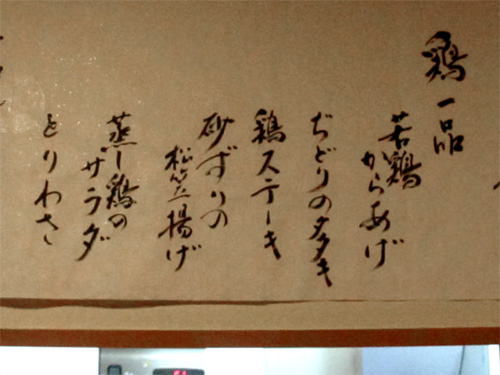 鶏一品
若鶏
からあげ
ぢどりのタタキ
鶏ステーキ
砂ずりの
松笠揚げ
蒸し鶏の
サラダ
とりわさ